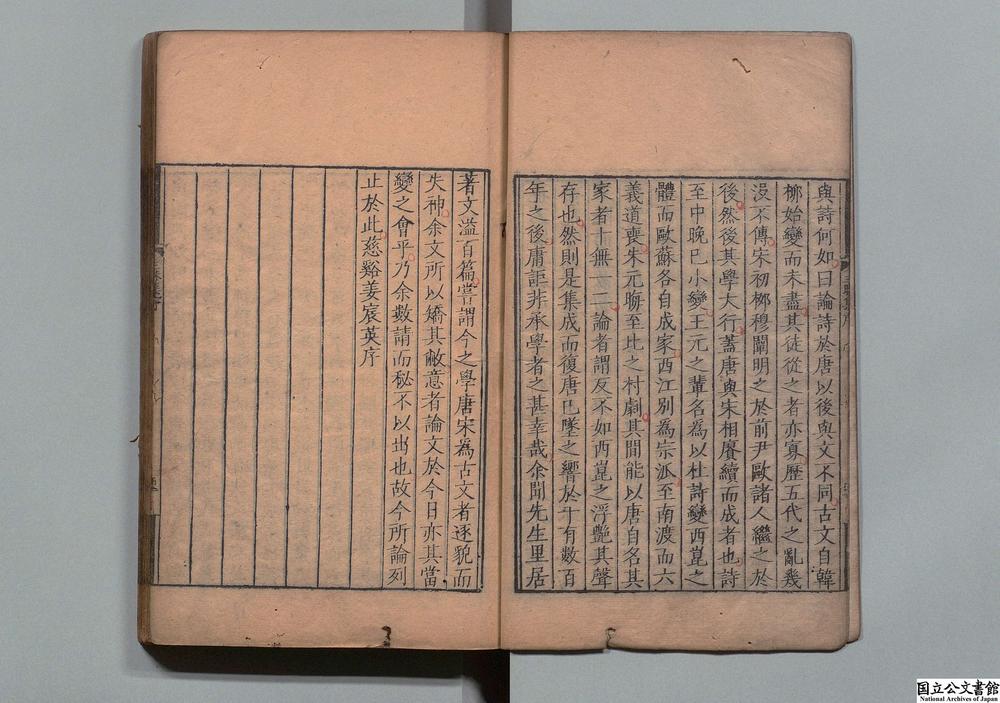 與詩何如曰論詩於唐以後與文不同古文自韓
柳始變而未盡其徒從之者亦寡歷五代之亂幾
沒不傳宋初柳穆闡明之於前尹歐諸人繼之於
後然後其學大行蓋唐與宋相賡續而成者也詩
至中晚已小變王元之輩名為以杜詩變西崑之
體而歐蘇各自成家西江別為宗派至南渡而六
義道喪朱元晦至比之村劇其間能以唐自名其
家者十無一二論者謂反不如西崑之浮艷其聲
存也然則是集成而復唐已墜之響於千有數百
年之後庸詎非承學者之甚幸哉余聞先生里居
著文溢百篇嘗謂今之學唐宋為古文者逐貌而
失神余文所以矯其敝意者論文於今日亦其當
變之會乎乃余數請而秘不以出也故今所論列
止於此慈谿姜宸英序
国立公文書館
National Archives of Japan